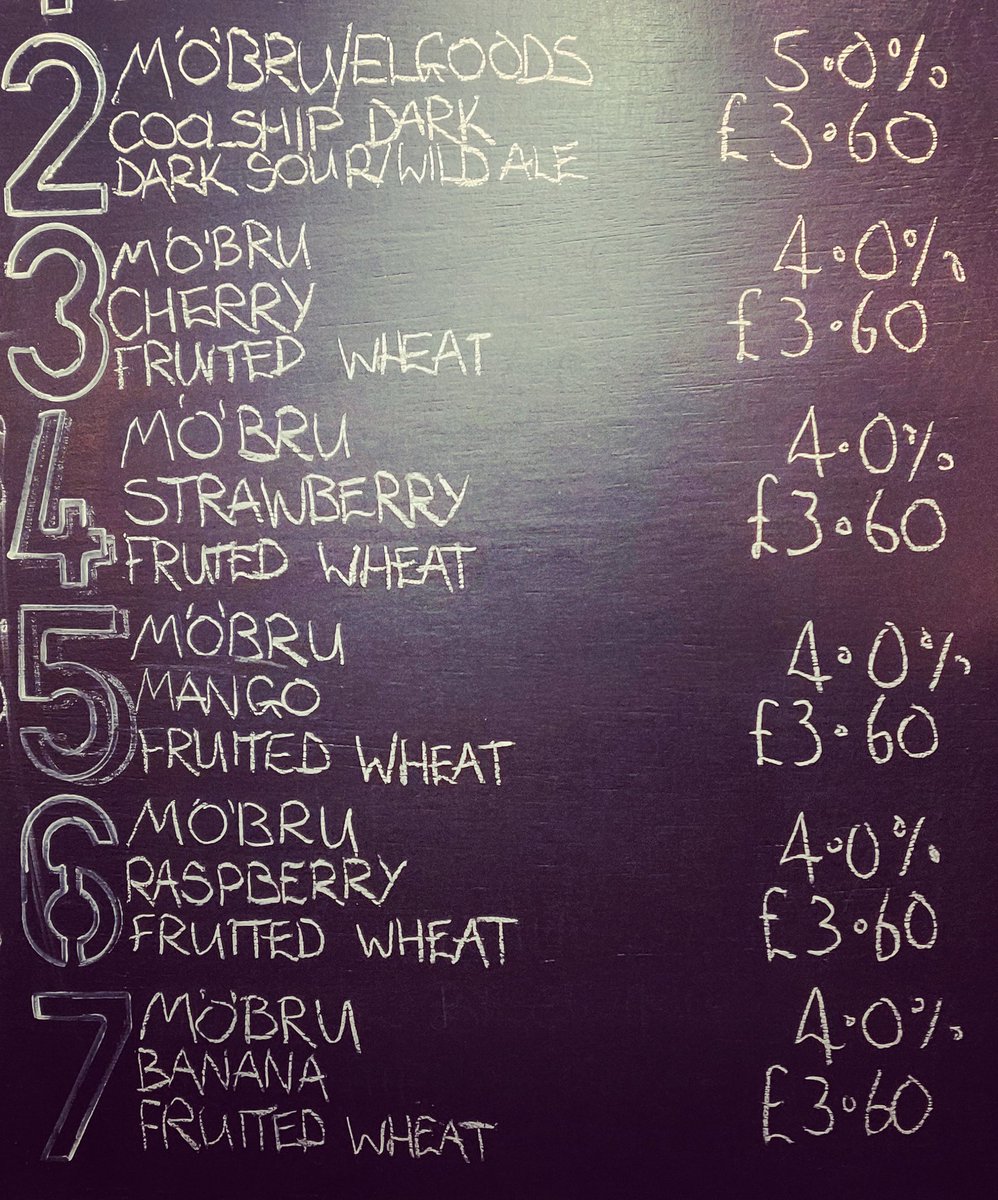 2 M'O'BRU/ELGOODS 5.0%
COOLSHIP DARK £3.60
DARK SOUR/WILD ALE
3 M'O'BRU 4.0%
CHERRY £3.60
FRUITED WHEAT
4 M'O'BRU 4.0%
STRAWBERRY £3.60
FRUITED WHEAT
5 M'O'BRU 4.0%
MANGO £3.60
FRUITED WHEAT
6 M'O'BRU 4.0%
RASPBERRY £3.60
FRUITED WHEAT
7 M'O'BRU 4.0%
BANANA £3.60
FRUITED WHEAT